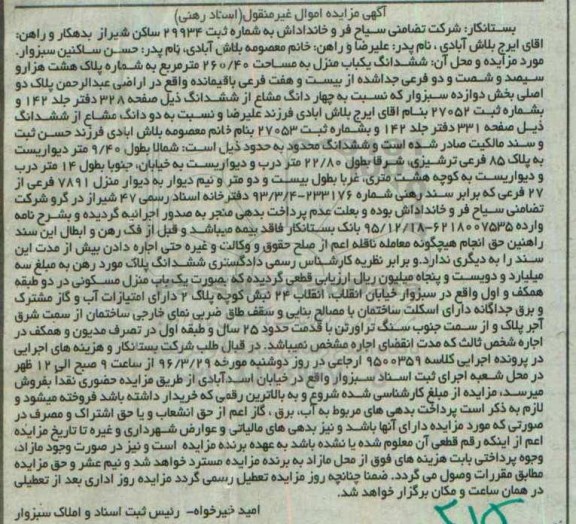 آگهی مزایده اموال غیرمنقول(اسناد رهنی)
بستانکار: شرکت تضامنی سیاح فر و خاناداش به شماره ثبت ۲۹۹۳۴ ساکن شیراز بدهکار و راهن:
آقای ایرج بلاش آبادی ، نام پدر: علیرضا و راهن: خانم معصومه بلاش آبادی، نام پدر: حسن ساکنین سبزوار.
مورد مزایده و محل آن: ششدانگ یکباب منزل به مساحت ۲۶۰/۴۰ مترمربع به شماره پلاک هشت هزار و
سیصد و شصت و دو فرعی جداشده از بیست و هفت فرعی باقیمانده واقع در اراضی عبدالرحمن پلاک دو
اصلی بخش دوازده سبزوار که نسبت به چهار دانگ مشاع از ششدانگ ذیل صفحه ۳۲۸ دفتر جلد ۱۴۲ و
بشماره ثبت ۲۷۰۵۲ بنام آقای ایرج بلاش ابادی فرزند علیرضا و نسبت به دو دانگ مشاع از ششدانگ
ذیل صفحه ۳۳۱ دفتر جلد ۱۴۲ و بشماره ثبت ۲۷۰۵۳ بنام خانم معصومه بلاش ابادی فرزند حسن ثبت
و سند مالکیت صادر شده است و ششدانگ محدود به حدود ذیل است: شمالا بطول ۹/۴۰ متر دیواریست
به پلاک ۸۵ فرعی ترشیزی، شرقا بطول ۲۲/۸۰ متر درب و دیواریست به خیابان، جنوبا بطول ۱۴ متر درب
و دیواریست به کوچه هشت متری، غربا بطول بیست و دو متر و نیم دیوار به دیوار منزل ۷۸۹۱ فرعی از
۲۷ فرعی که برابر سند رهنی شماره ۲۳۳۱۷۶-۹۳/۳/۴ دفترخانه اسناد رسمی ۴۷ شیراز در گرو شرکت
تضامنی سیاح فر و خاناداش بوده و بعلت عدم پرداخت بدهی منجر به صدور اجرائیه گردیده و بشرح نامه
وارده ۶۲۱۸۰۰۷۵۳۵-۹۵/۱۲/۱۸ بانک بستانکار فاقد بیمه میباشد و قبل از فک رهن و ابطال این سند
راهنین حق انجام هیچگونه معامله ناقله اعم از صلح حقوق و وکالت و غیره حتی اجاره دادن بیش از مدت این
سند را به دیگری ندارد. و برابر نظریه کارشناس رسمی دادگستری ششدانگ پلاک مورد رهن به مبلغ سه
میلیارد و دویست و پنجاه میلیون ریال ارزیابی قطعی گردیده که بصورت یک باب منزل مسکونی در دو طبقه
همکف و اول واقع در سبزوار خیابان انقلاب، انقلاب ۲۴ نبش کوچه پلاک ۲ دارای امتیازات آب و گاز مشترک
و برق جداگانه دارای اسکلت ساختمان با مصالح بنایی و سقف طاق ضربی نمای خارجی ساختمان از سمت شرق
آجر پلاک و از سمت جنوب سنگ تراورتن با قدمت حدود ۲۵ سال و طبقه اول در تصرف مدیون و همکف در
اجاره شخص ثالث که مدت انقضای اجاره مشخص نمیباشد. در قبال طلب شرکت بستانکار و هزینه های اجرایی
در پرونده اجرایی کلاسه ۹۵۰۰۳۵۹ ارجاعی در روز دوشنبه مورخه ۹۶/۳/۲۹ از ساعت ۹ صبح الی ۱۲ ظهر
در محل شعبه اجرای ثبت اسناد سبزوار واقع در خیابان اسدآبادی از طریق مزایده حضوری نقدا بفروش
میرسد، مزایده از مبلغ کارشناسی شده شروع و به بالاترین رقمی که خریدار داشته باشد فروخته میشود و
لازم به ذکر است پرداخت بدهی های مربوط به آب، برق ، گاز اعم از حق انشعاب و یا حق اشتراک و مصرف در
صورتی که مورد مزایده دارای آنها باشد و نیز بدهی های مالیاتی و عوارض شهرداری و غیره تا تاریخ مزایده
اعم از اینکه رقم قطعی آن معلوم شده یا نشده باشد به عهده برنده مزایده است و نیز در صورت وجود مازاد،
وجوه پرداختی بابت هزینه های فوق از محل مازاد به برنده مزایده مسترد خواهد شد و نیم عشر و حق مزایده
مطابق مقررات وصول می گردد. ضمنا چنانچه روز مزایده تعطیل رسمی گردد مزایده روز اداری بعد از تعطیلی
در همان ساعت و مکان برگزار خواهد شد.
امید خیرخواه- رئیس ثبت اسناد و املاک سبزوار